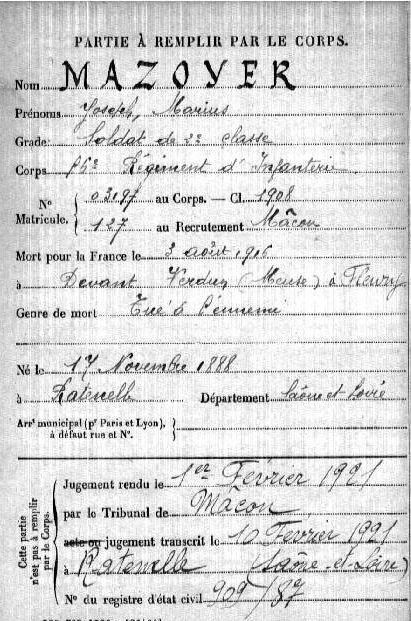 PARTIE À REMPLIR PAR LE CORPS.
Nom MAZOYER
Prénoms Joseph, Marius
Grade Soldat de 2e classe
Corps Régiment d'Infanterie
N° Matricule. 03197 au Corps. — Cl. 1908
127 au Recrutement Mâcon
Mort pour la France le 3 août 1916
à Devant Verdun (Meuse) à Fleury
Genre de mort Tué à l'ennemi
Né le 17 Novembre 1888
à Ratenelle Département Saône et Loire
Arrt municipal (pr Paris et Lyon),
à défaut rue et N°.
Cette partie n'est pas à remplir par le Corps.
Jugement rendu le 1er Février 1921
par le Tribunal de Mâcon
acte ou jugement transcrit le 10 Février 1921
à Ratenelle (Saône-et-Loire)
N° du registre d'état civil 909/87